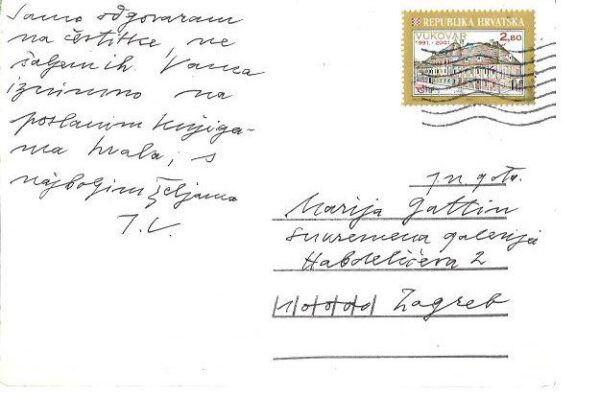 Samo odgovaram
na čestitke, ne
šaljem ih. Vama
iznimno na
poslanim knjiga-
ma hvala, s
najboljim željama
J.V.
REPUBLIKA HRVATSKA
VUKOVAR
1991. - 2001.
2,80
Marija Gattin
Suvremena galerija
Habdelićeva 2
10000 Zagreb